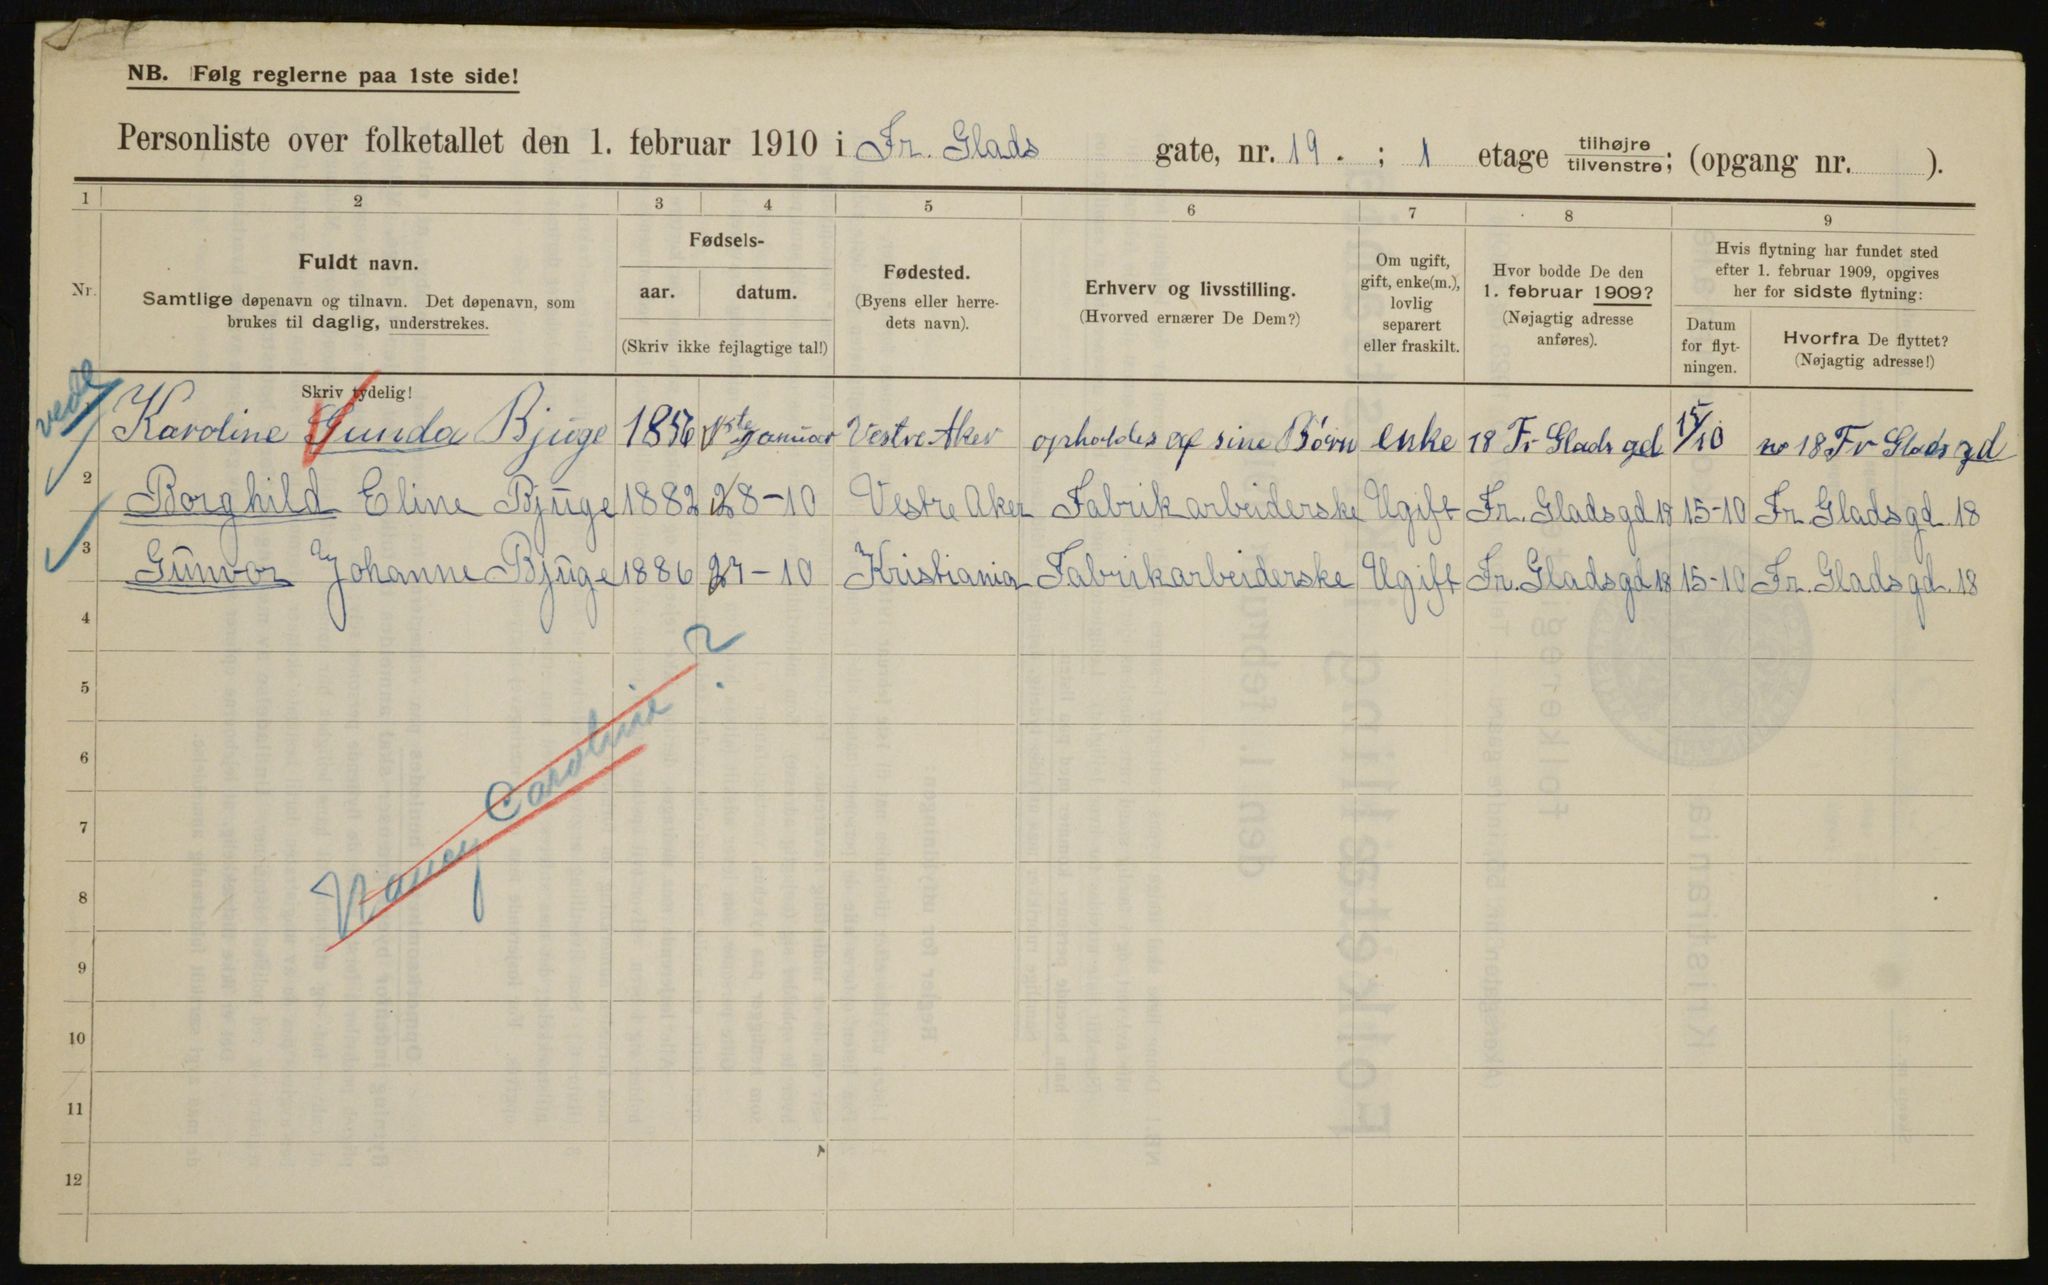 NB. Følg reglerne paa 1ste side!
Personliste over folketallet den 1. februar 1910 i Fr. Glads gate, nr. 19. ; 1 etage tilhøjre/tilvenstre; (opgang nr. ).
1 2 3 4 5 6 7 8 9
Nr.
Fuldt navn.
Samtlige døpenavn og tilnavn. Det døpenavn, som
brukes til daglig, understrekes.
Skriv tydelig!
Fødsels-
aar. datum.
(Skriv ikke fejlagtige tal!)
Fødested.
(Byens eller herre-
dets navn).
Erhverv og livsstilling.
(Hvorved ernærer De Dem?)
Om ugift,
gift, enke(m.),
lovlig
separert
eller fraskilt.
Hvor bodde De den
1. februar 1909?
(Nøjagtig adresse
anføres).
Hvis flytning har fundet sted
efter 1. februar 1909, opgives
her for sidste flytning:
Datum
for flyt-
ningen.
Hvorfra De flyttet?
(Nøjagtig adresse!)
Karoline Gunda Bjuge 1856 1ste januar Vestre Aker opholdes af sine Börn enke 18 Fr Glads gd 15/10 no 18 Fr Glads gd
2 Borghild Eline Bjuge 1882 28-10 Vestre Aker Fabrikarbeiderske Ugift Fr. Glads gd 18 15-10 Fr. Glads gd. 18
3 Gunvor Johanne Bjuge 1886 27-10 Kristiania Fabrikarbeiderske Ugift Fr. Glads gd 18 15-10 Fr. Glads gd. 18
4
5
6
7
8
9
10
11
12
Caroline ?